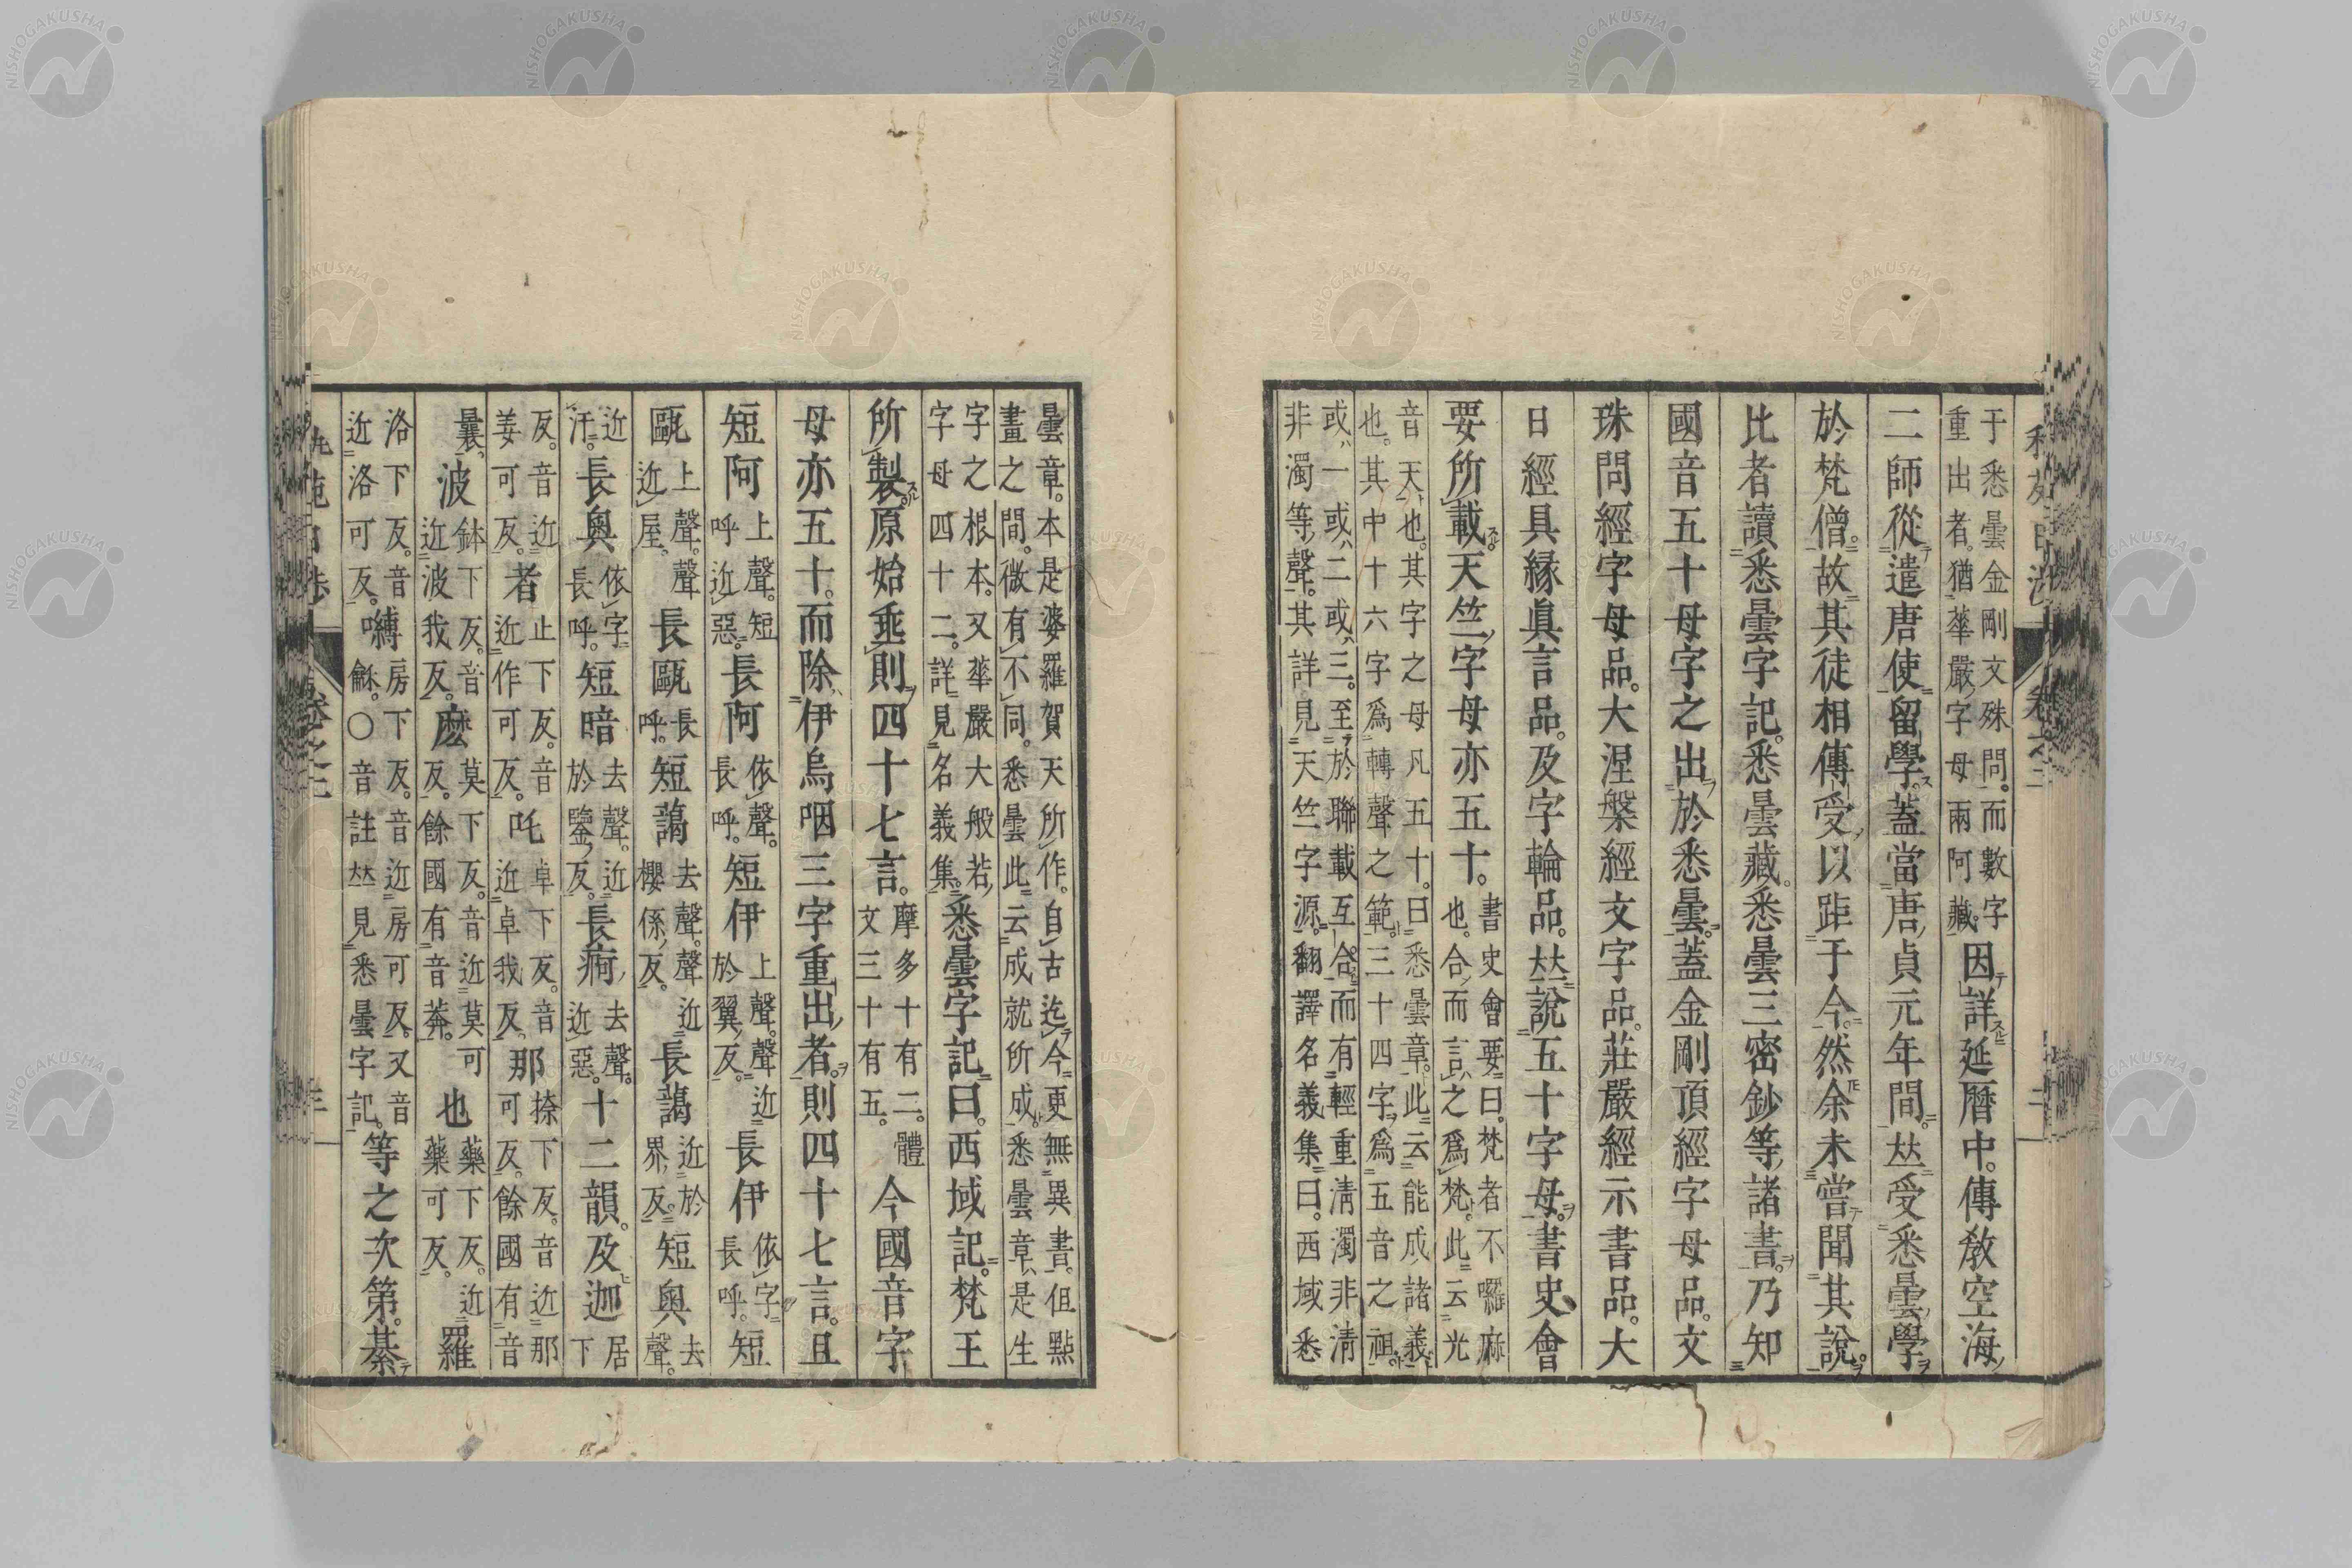 于悉曇金剛文殊問。而數字
重出者。猶華嚴字母兩阿藏。因詳延暦中。傳教空海
二師從遣唐使留學。蓋當唐貞元年間。𠀋受悉曇學
於梵僧。故其徒相傳受以距于今。然余未嘗聞其說。
比者讀悉曇字記。悉曇藏。悉曇三密鈔等諸書。乃知
國音五十母字之出於悉曇。蓋金剛頂經字母品。文
珠問經字母品。大涅槃經文字品。莊嚴經示書品。大
日經具縁眞言品。及字輪品。𠀋說五十字母。書史會
要所載天竺字母亦五十。書史會要曰。梵者不囉麻
也。合而言之爲梵。此云光
音天也。其字之母凡五十。曰悉曇章。此云能成諸義
也。其中十六字爲轉聲之範。三十四字爲五音之祖。
或一或二或三。至於聯載互合。而有輕重淸濁非淸
非濁等聲。其詳見天竺字源。翻譯名義集曰。西域悉
曇章。本是婆羅賀天所作。自古迄今更無異書。但點
畫之間。微有不同。悉曇此云成就所成。悉曇章是生
字之根本。又華嚴大般若
字母四十二。詳見名義集。悉曇字記曰。西域記。梵王
所製。原始垂則四十七言。摩多十有二。體
文三十有五。今國音字
母亦五十。而除伊烏咽三字重出者。則四十七言。且
短阿上聲。短
呼近惡。長阿依聲。
長呼。短伊上聲。聲近
於翼反。長伊依字
長呼。短
甌上聲。聲
近屋。長甌長
呼。短藹去聲。聲近
櫻係反。長藹近於
界反。短奥去
聲。
近
汙。長奥依字
長呼。短暗去聲。近
於鑒反。長痾去聲。
近惡。十二韻。及迦居
下
反。音近
姜可反。者止下反。音
近作可反。吒卓下反。音
近卓我反。那捺下反。音近那
可反。餘國有音
曩。波鉢下反。音
近波我反。麽莫下反。音近莫可
反。餘國有音莽。也藥下反。近
藥可反。羅
洛下反。音
近洛可反。嚩房下反。音近房可反。又音
龢。〇音註𠀋見悉曇字記。等之次第。綦
卷之三